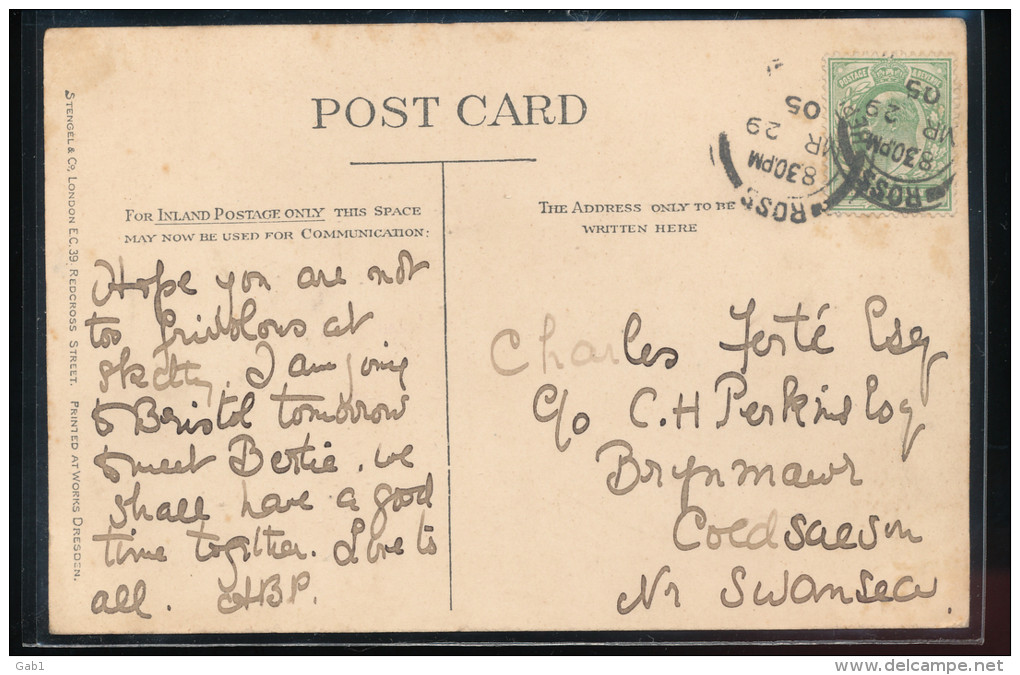 POST CARD
FOR INLAND POSTAGE ONLY THIS SPACE
MAY NOW BE USED FOR COMMUNICATION:
THE ADDRESS ONLY TO BE
WRITTEN HERE
Hope you are not
too frivolous at
Sketty. I am going
to Bristol tomorrow
to meet Bertie. we
shall have a good
time together. Love to
all. HBP.
Charles Ferté Esq
c/o C. H Perkins Esq
Brynmawr
Coedsaeson
Nr Swansea.
STENGEL & Co, LONDON E.C. 39, REDCROSS STREET. PRINTED AT WORKS DRESDEN.
ROSS
8 30PM
MR 29
05
POSTAGE
ROSS
8 30PM
MR 29
05
Gab1
www.delcampe.net